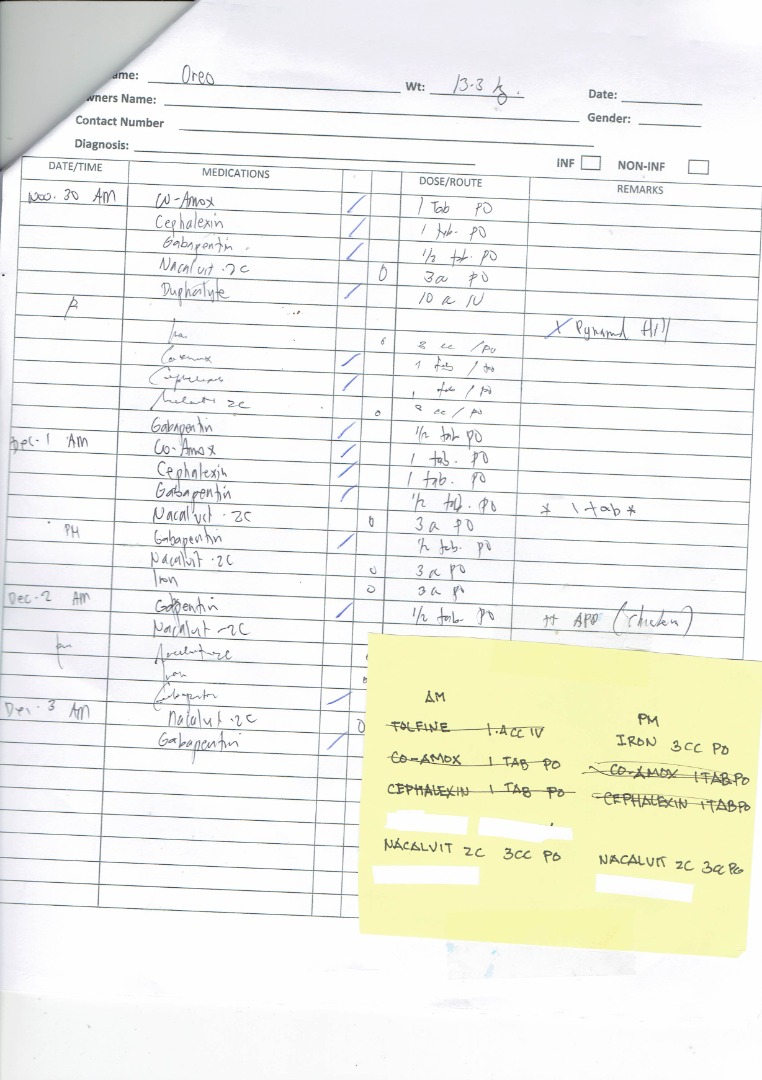 ame: Oreo Wt: 13.3 kg. Date:
wners Name:
Contact Number Gender:
Diagnosis: INF NON-INF
DATE/TIME MEDICATIONS DOSE/ROUTE REMARKS
Nov. 30 AM Co-Amox / 1 Tab PO
Cephalexin / 1 tab. PO
Gabapentin / 1/2 tab. PO
Nacalvit-2C 0 3cc PO
Duphalyte / 10 cc IV
Pyramid Hill
8 cc /po
/ 1 tab / po
/ 1 tab / po
2C 0 8 cc / po
Gabapentin / 1/2 tab PO
Dec-1 AM Co-Amox / 1 tab. PO
Cephalexin / 1 tab. PO
Gabapentin / 1/2 tab. PO * 1 tab *
Nacalvit-2C 0 3cc PO
PM Gabapentin / 1/2 tab. PO
Nacalvit-2C 0 3cc PO
Iron 0 3cc PO
Dec-2 AM Gabpentin / 1/2 tab PO (chicken)
Nacalvit-2C
Dec-3 AM Nacalvit-2C 0
Gabapentin /
AM
TOLFINE 1.4CC IV
CO-AMOX 1 TAB PO
CEPHALEXIN 1 TAB PO
NACALVIT 2C 3CC PO
PM
IRON 3CC PO
CO-AMOX 1TAB PO
CEPHALEXIN 1TAB PO
NACALVIT 2C 3CC PO